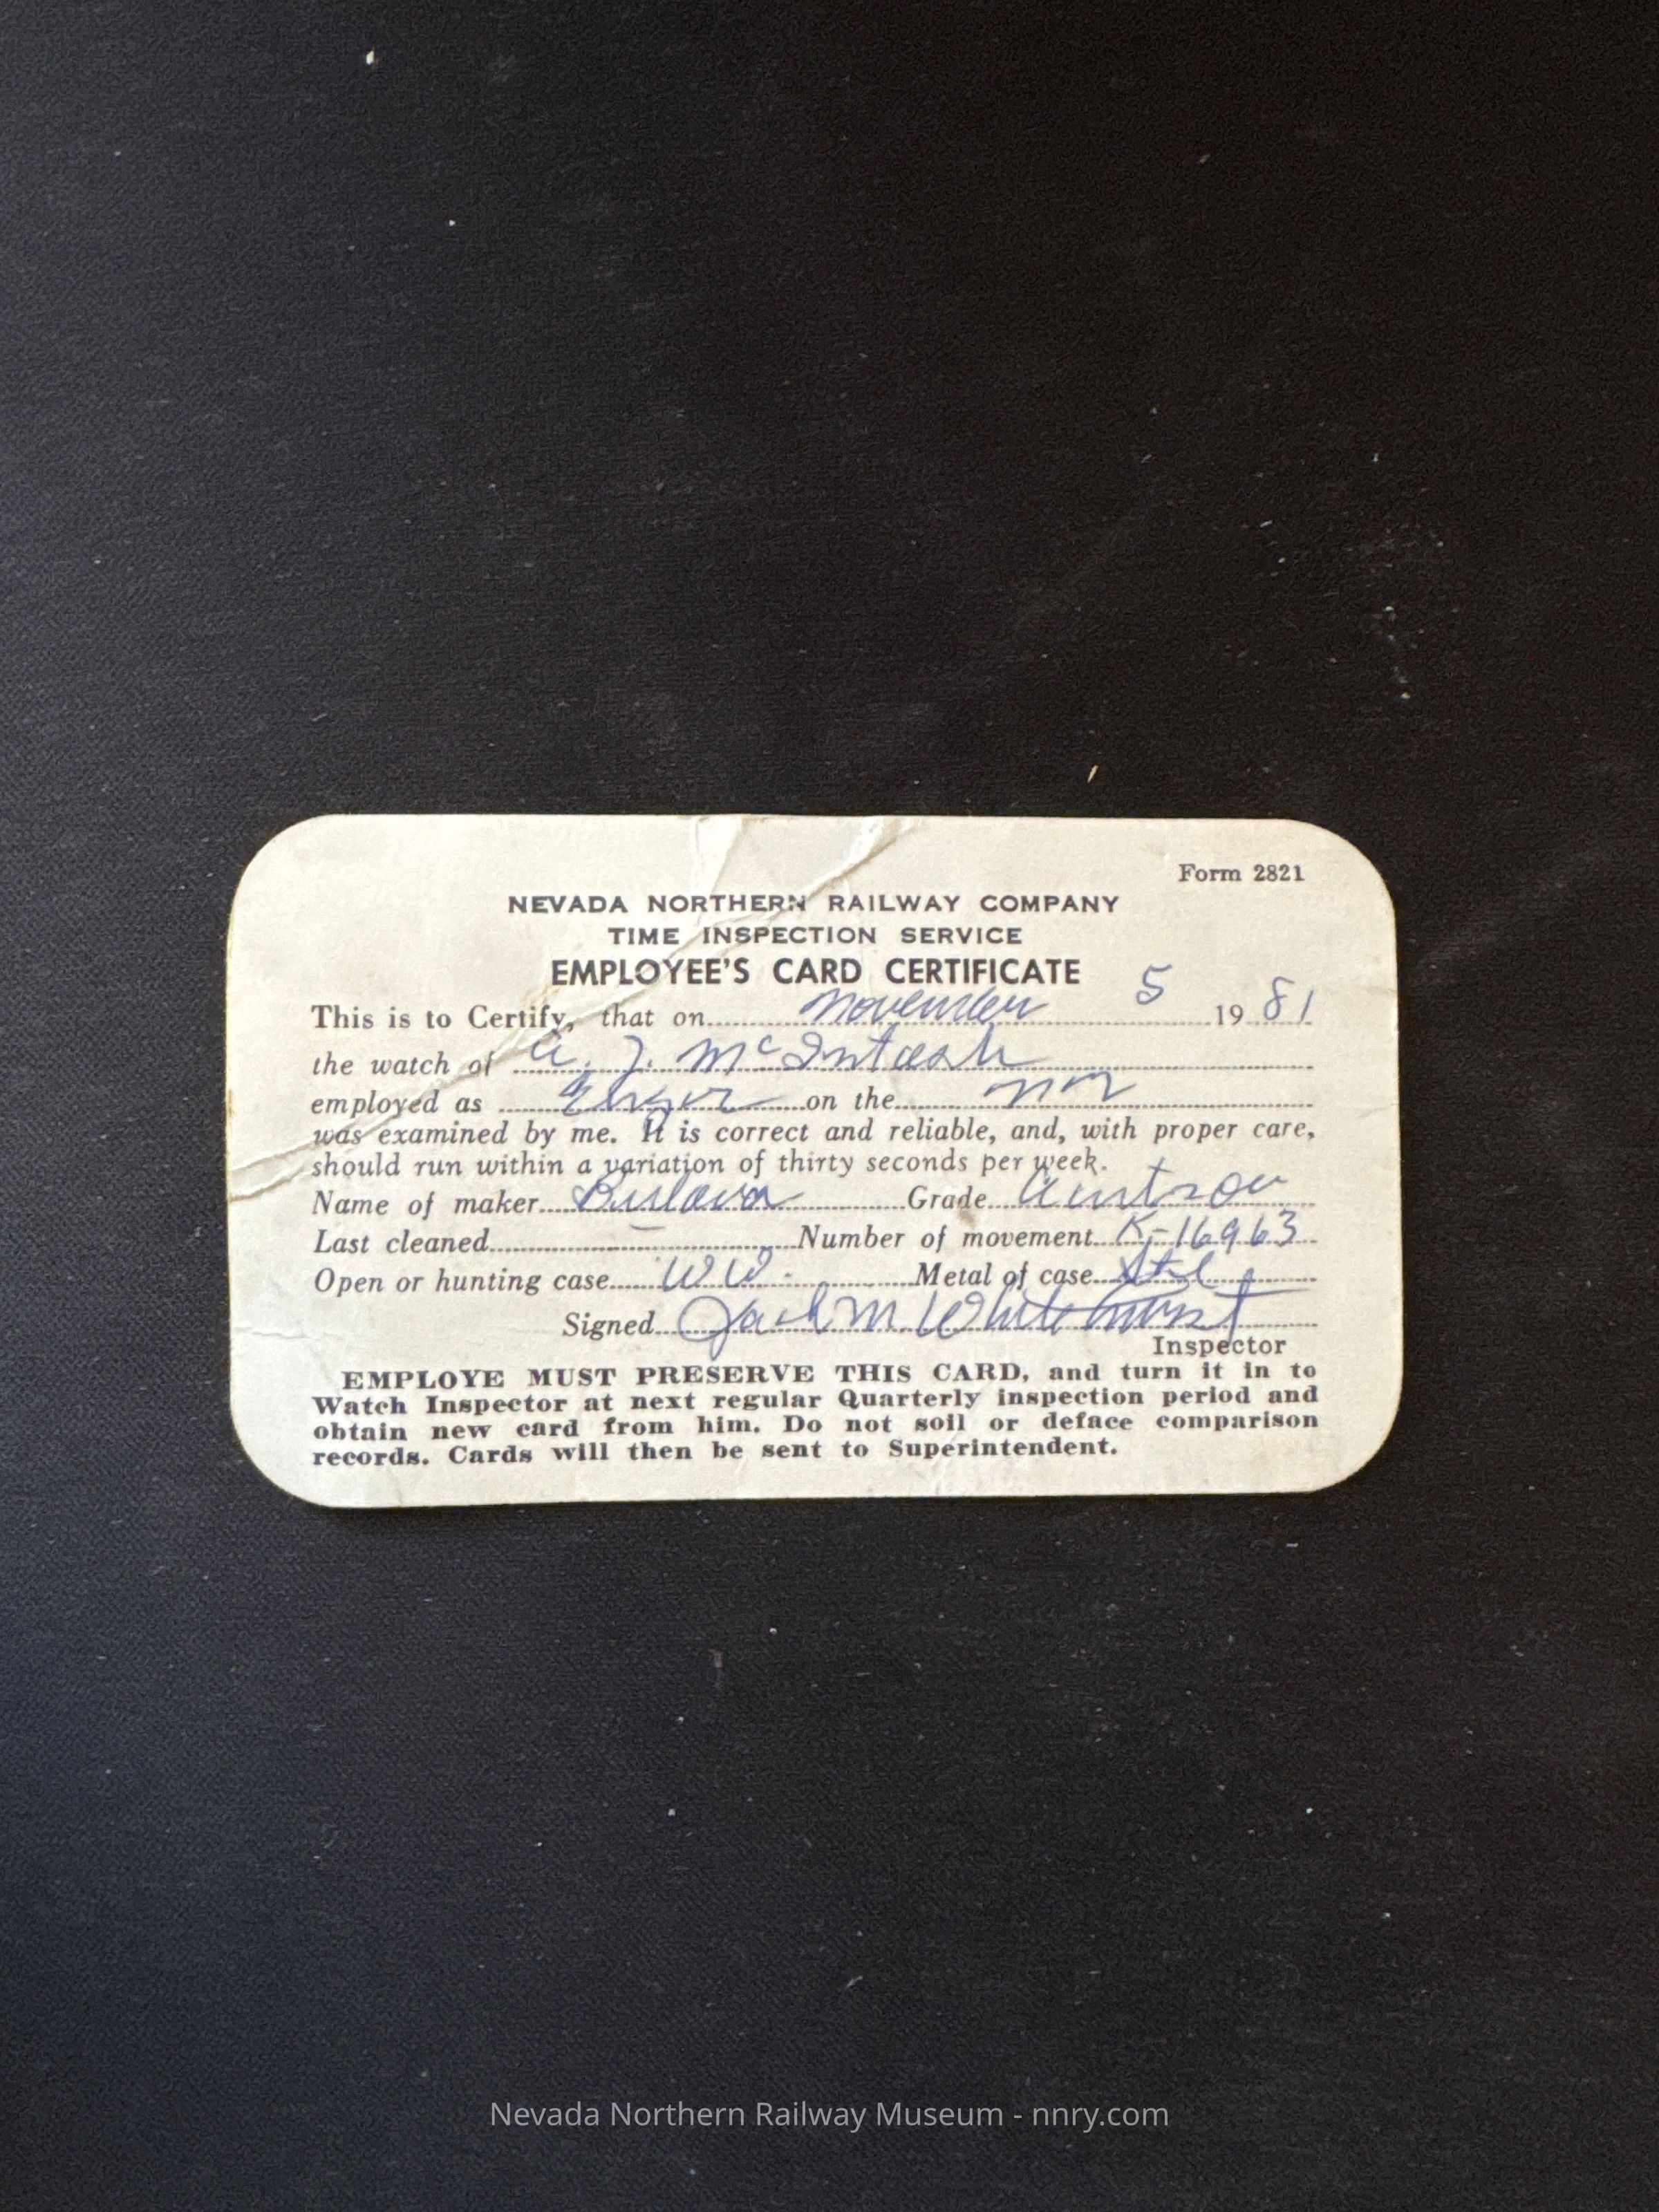 Form 2821
NEVADA NORTHERN RAILWAY COMPANY
TIME INSPECTION SERVICE
EMPLOYEE'S CARD CERTIFICATE
This is to Certify, that on November 5 19 81
the watch of A. J. McIntosh
employed as on the NN
was examined by me. It is correct and reliable, and, with proper care,
should run within a variation of thirty seconds per week.
Name of maker Bulova Grade
Last cleaned — Number of movement K-16963
Open or hunting case WW. Metal of case Stl
Signed Jack M Whitehurst
Inspector
EMPLOYE MUST PRESERVE THIS CARD, and turn it in to
Watch Inspector at next regular Quarterly inspection period and
obtain new card from him. Do not soil or deface comparison
records. Cards will then be sent to Superintendent.
Nevada Northern Railway Museum - nnry.com